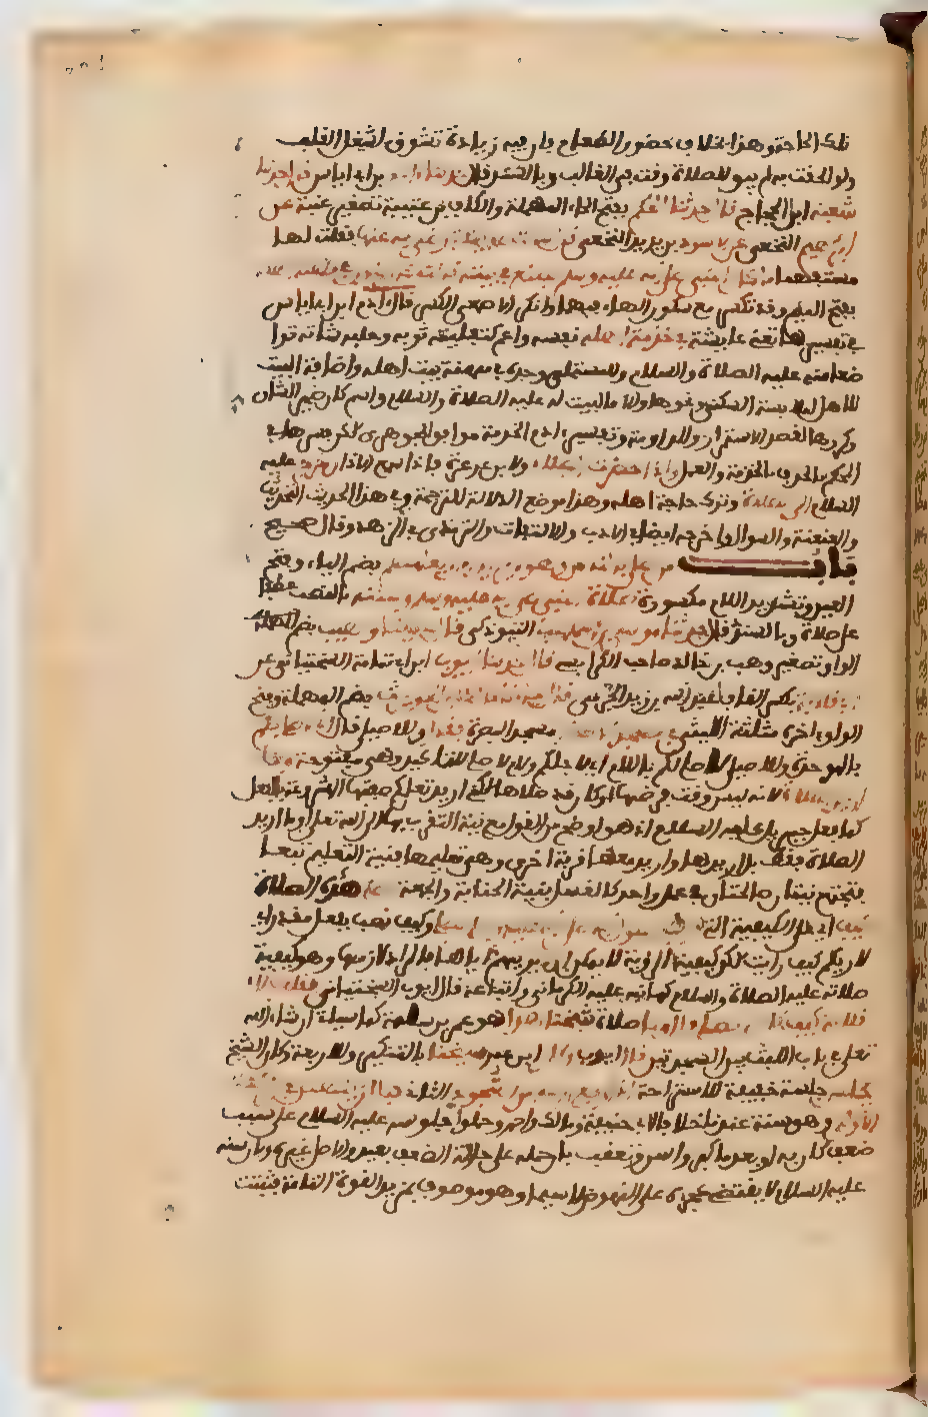 تلك الحاجة وهذا بخلاف حضور الطعام فان فيه زيادة تشوق لشغل القلب
ولو الحقت به لم يبق للصلاة وقت في الغالب وبالسند قال حدثنا ادم بن ابي اياس قال حدثنا
شعبة ابن الحجاج قال حدثنا الحكم بفتح الحاء المهملة والكاف بن عتيبة تصغير عتبة عن
ابراهيم النخعي عن الاسود بن يزيد النخعي قال سالت عايشة رضي الله عنها فقلت لها
مستفهما ما كان النبي صلى الله عليه وسلم يصنع في بيته قالت كان يكون في مهنة اهله
بفتح الميم وقد تكسر مع سكون الهاء فيهما وانكر الاصمعي الكسر قال ادم ابن ابي اياس
في تفسيرها تعني عايشة في خدمة اهله نفسه او اعم كتفليته ثوبه وحلبه شاته تواضعا
منه عليه الصلاة والسلام وللمستملي وحده في مهنة بيت اهله واضافة البيت
للاهل لملابسة السكنى ونحوها والا فالبيت له عليه الصلاة والسلام واسم كان ضمير الشان
وكررها لقصد الاستمرار والمداومة وتفسير ادم الخدمة موافق للجوهري لكن فسرها في
المحكم بالحذق بالخدمة والعمل فاذا حضرت الصلاة ولابن عرعرة فاذا سمع الاذان خرج عليه
السلام الى الصلاة وترك حاجة اهله وهذا موضع الدلالة للترجمة وفي هذا الحديث التحديث
والعنعنة والسوال واخرجه ايضا في الادب والنفقات والترمذي في الزهد وقال صحيح
باب من صلى بالناس وهو لا يريد الا ان يعلمهم بضم الياء وفتح
العين وتشديد اللام مكسورة صلاة النبي صلى الله عليه وسلم وسنته بالنصب عطفا
على صلاة وبالسند قال حدثنا موسى بن اسماعيل التبوذكي قال حدثنا وهيب بضم
الواو وتصغير وهب بن خالد صاحب الكرابيسي قال حدثنا ايوب ابن ابي تميمة السختياني عن
ابي قلابة بكسر القاف عبد الله بن زيد الجرمي قال جاءنا مالك بن الحويرث بضم المهملة وفتح
الواو اخره مثلثة الليثي في مسجدنا هذا مسجد البصرة فقال وللاصيلي قال اني لاصلي بكم
بالموحدة وللاصيلي لاصلي لكم باللام اي لاجلكم ولام لاصلي للتاكيد وهي مفتوحة وما
اريد الصلاة لانه ليس وقت فرضها او كان قد صلاها لكني اريد تعليمكم صفتها المشروعة بالفعل
كما فعل جبريل عليه السلام اذ هو اوضح من القول مع نية التقرب بها الى الله تعالى او ما اريد
الصلاة فقط بل اريدها واريد معها قربة اخرى وهي تعليمها فنية التعليم تبعا
فيجتمع نيتان صالحتان في عمل واحد كالغسل بنية الجنابة والجمعة اصلي هذه الصلاة
كيف اي على الكيفية التي رايت النبي صلى الله عليه وسلم يصلي وكيف نصب بفعل مقدر اي
لاريكم كيف رايت لكن كيفية الروية لا يمكن ان يريهم اياها فالمراد لازمها وهو كيفية
صلاته عليه الصلاة والسلام كما نبه عليه الكرماني واتباعه قال ايوب السختياني فقلت لابي
قلابة كيف كان يصلي قال مثل صلاة شيخنا هذا هو عمرو بن سلمة كما سياتي ان شاء الله
تعالى في باب اللبث بين السجدتين قال ايوب وكان اي عمرو شيخا بالتنكير وللاربعة وكان الشيخ
يجلس جلسة خفيفة للاستراحة اذا رفع راسه من السجود الثاني قبل ان ينهض في الركعة
الاولى وهو سنة عندنا خلافا لابي حنيفة ومالك واحمد وحملوا جلوسه عليه السلام على سبب
ضعف كان به او بعدما كبر واسن وتعقب بان حمله على حالة الضعف بعيد والاصل غيره وبان سنه
عليه السلام لا يقتضي عجزه عن النهوض لا سيما وهو موصوف بمزيد القوة التامة فثبتت